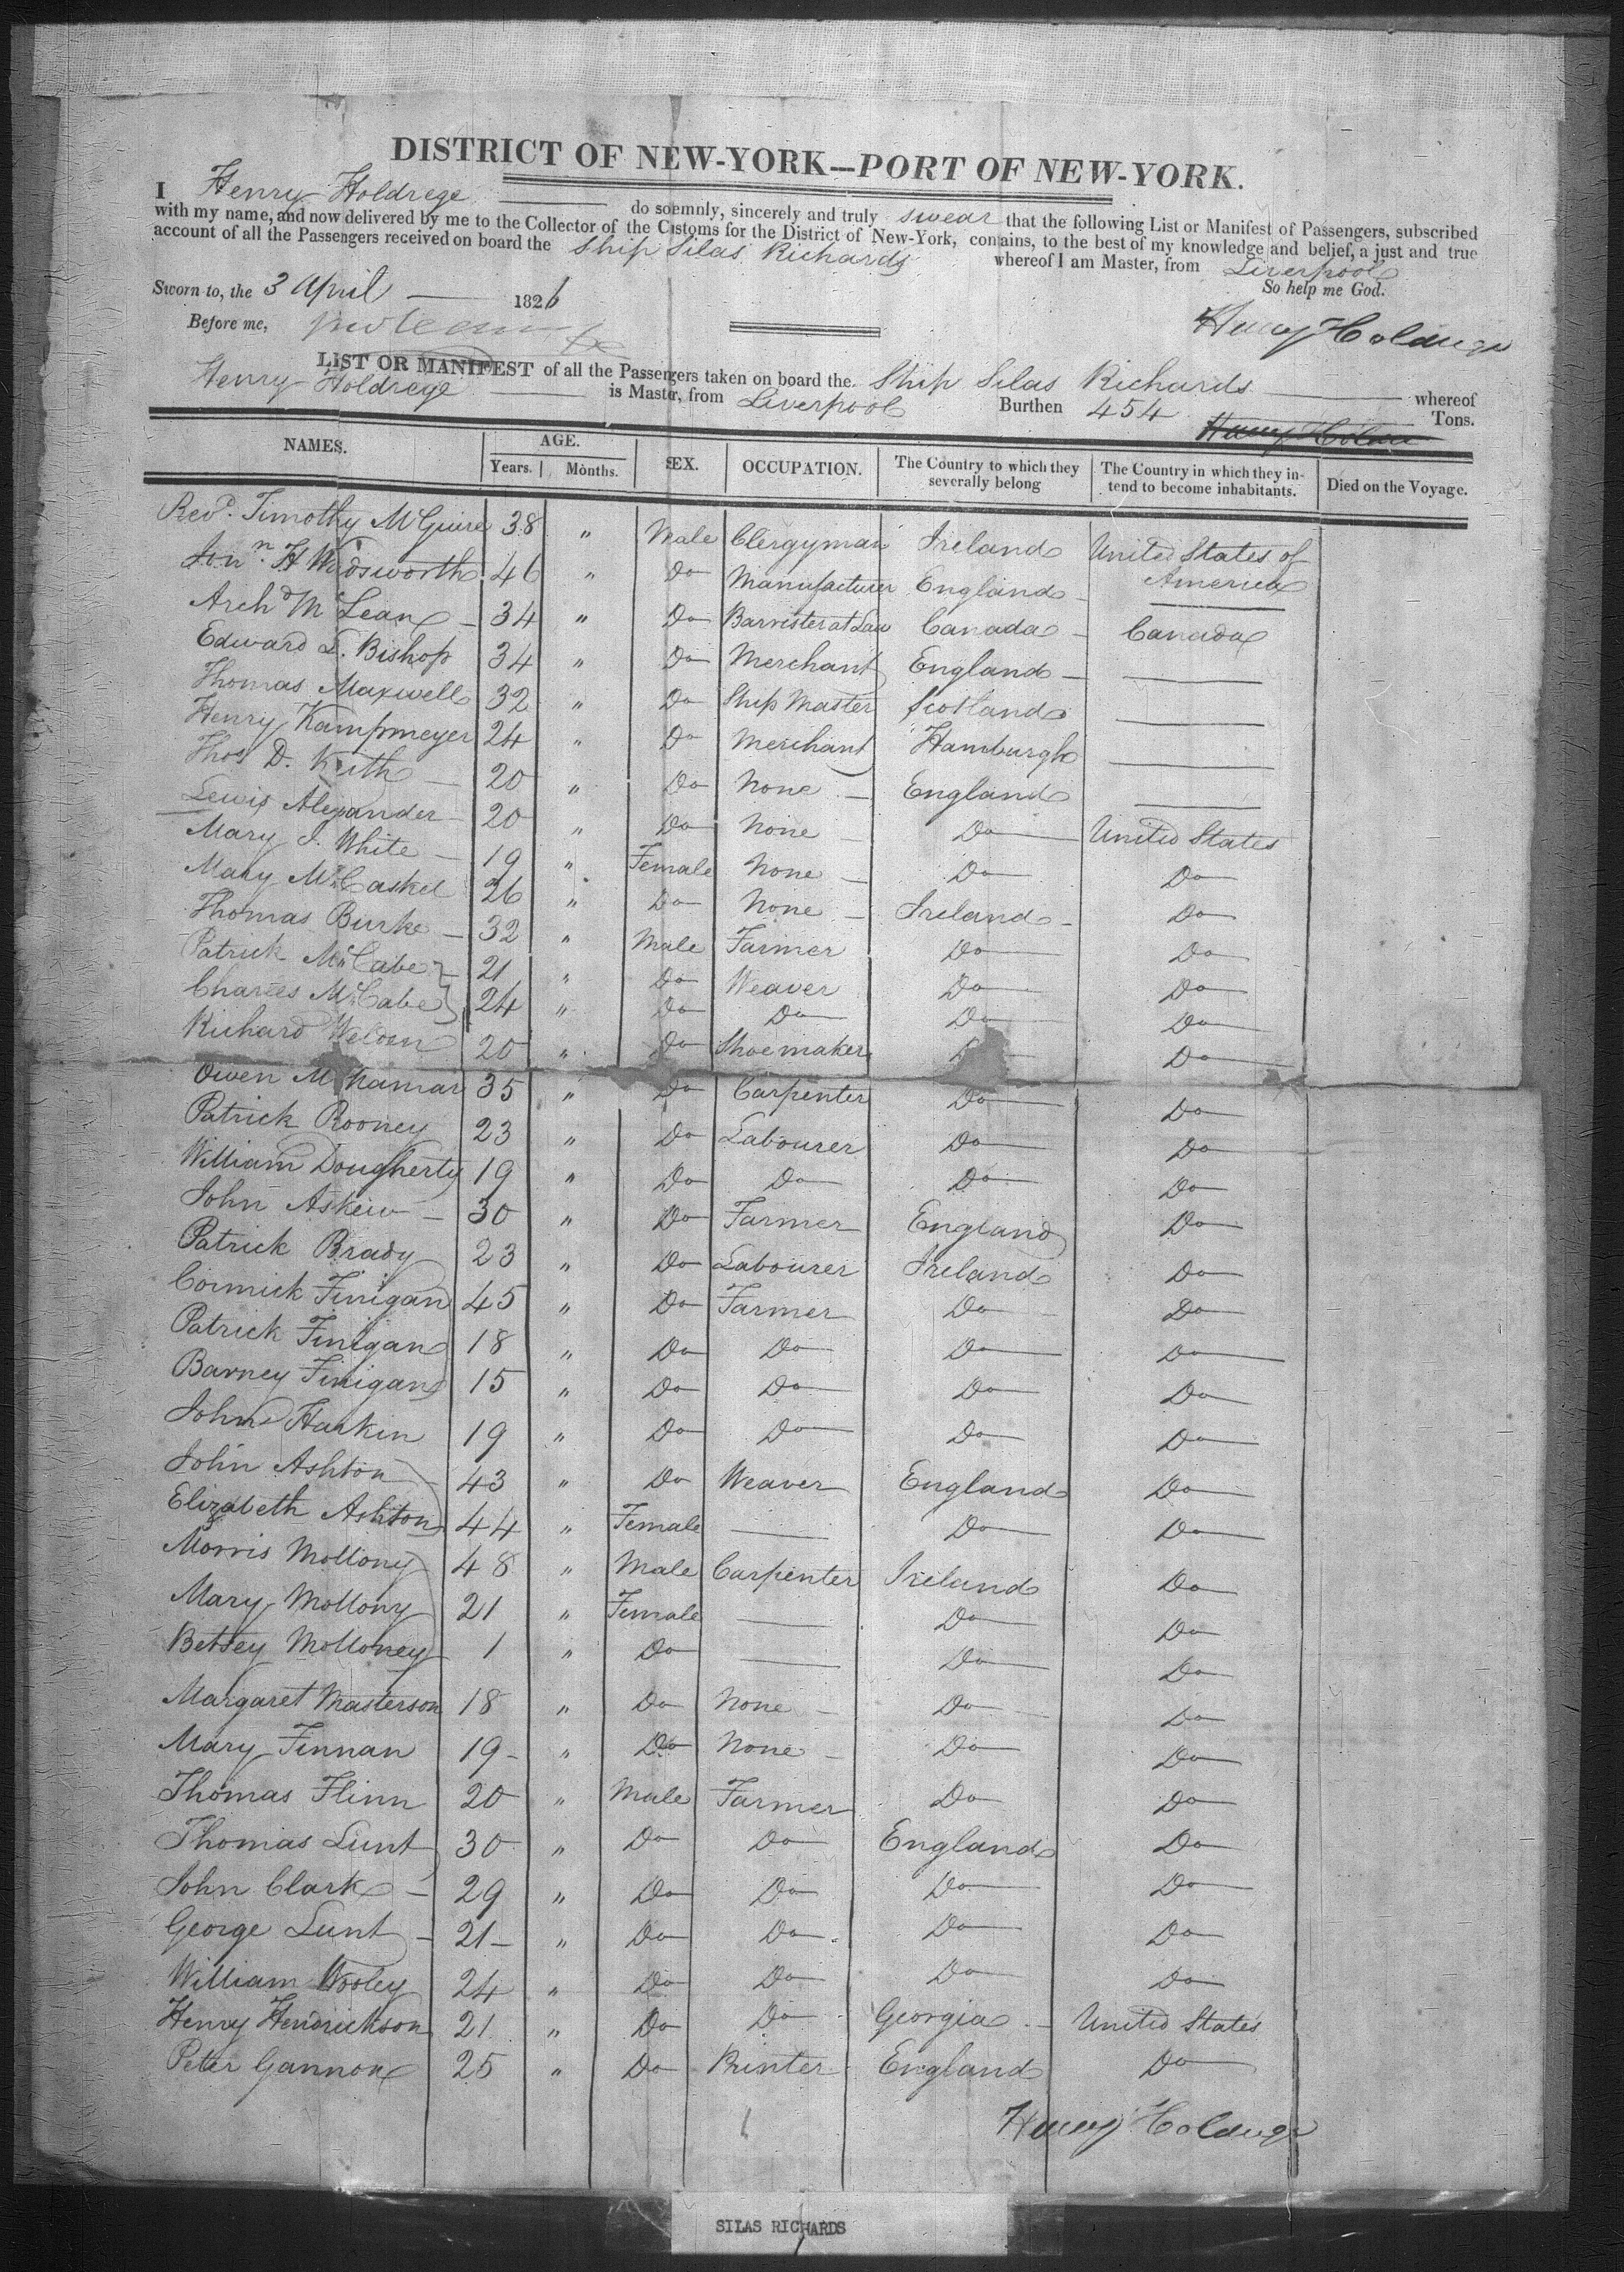 DISTRICT OF NEW-YORK—PORT OF NEW-YORK.
I Henry Holdrege do soemnly, sincerely and truly swear that the following List or Manifest of Passengers, subscribed
with my name, and now delivered by me to the Collector of the Customs for the District of New-York, contains, to the best of my knowledge and belief, a just and true
account of all the Passengers received on board the Ship Silas Richards whereof I am Master, from Liverpool
So help me God.
Sworn to, the 3 April 1826
Before me,
Henry Holdrege
LIST OR MANIFEST of all the Passengers taken on board the Ship Silas Richards whereof
Henry Holdrege is Master, from Liverpool Burthen 454 Tons.
NAMES. AGE. Years. Months. SEX. OCCUPATION. The Country to which they severally belong The Country in which they intend to become inhabitants. Died on the Voyage.
Revd. Timothy McGuire 38 " Male Clergyman Ireland United States of America
Jonn. H Wadsworth 46 " Do Manufacturer England —
Archd McLean 34 " Do Barrister at Law Canada Canada
Edward L. Bishop 34 " Do Merchant England —
Thomas Maxwell 32 " Do Ship Master Scotland —
Henry Kampmeyer 24 " Do Merchant Hamburgh —
Thos D. Keith 20 " Do None England —
Lewis Alexander 20 " Do None Do United States
Mary J. White 19 " Female None Do Do
Mary McCaskel 26 " Do None Ireland Do
Thomas Burke 32 " Male Farmer Do Do
Patrick McCabe 21 " Do Weaver Do Do
Charles McCabe 24 " Do Do Do Do
Richard Weldon 20 " Do Shoemaker Do
Owen McNamar 35 " Do Carpenter Do Do
Patrick Rooney 23 " Do Labourer Do Do
William Dougherty 19 " Do Do Do Do
John Askew 30 " Do Farmer England Do
Patrick Brady 23 " Do Labourer Ireland Do
Cormick Finigan 45 " Do Farmer Do Do
Patrick Finigan 18 " Do Do Do Do
Barney Finigan 15 " Do Do Do Do
John Harkin 19 " Do Do Do Do
John Ashton 43 " Do Weaver England Do
Elizabeth Ashton 44 " Female — Do Do
Morris Mollony 48 " Male Carpenter Ireland Do
Mary Mollony 21 " Female — Do Do
Betsey Molloney 1 " Do — Do Do
Margaret Masterson 18 " Do None Do Do
Mary Finnan 19 " Do None Do Do
Thomas Flinn 20 " Male Farmer Do Do
Thomas Lunt 30 " Do Do England Do
John Clark 29 " Do Do Do Do
George Lunt 21 " Do Do Do Do
William Wooley 24 " Do Do Do Do
Henry Hendrickson 21 " Do Do Georgia United States
Peter Gannon 25 " Do Printer England Do
Henry Holdrege
SILAS RICHARDS